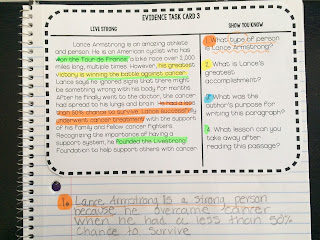 EVIDENCE TASK CARD 3
LIVE STRONG
Lance Armstrong is an amazing athlete
and person. He is an American cyclist who has
won the Tour de France, a bike race over 2,000
miles long, multiple times. However, his greatest
victory is winning the battle against cancer.
Lance says he ignored signs that there might
be something wrong with his body for months.
After he finally went to the doctor, the cancer
had spread to his lungs and brain. He had a less
than 50% chance to survive. Lance successfully
underwent cancer treatments with the support
of his family and fellow cancer fighters.
Recognizing the importance of having a
support system, he founded the Livestrong
Foundation to help support others with cancer.
SHOW YOU KNOW
1. What type of person
is Lance Armstrong?
2. What is Lance's
greatest
accomplishment?
3. What was the
author's purpose for
writing this paragraph?
4. What lesson can you
take away after
reading this passage?
1. Lance Armstrong is a strong person
because he overcame cancer
when he had a less than 50%
chance to survive